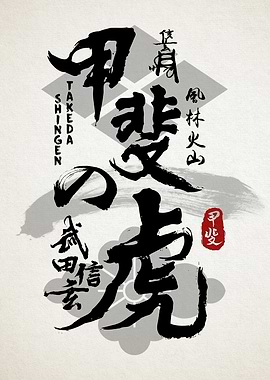 甲斐の虎
TAKEDA
SHINGEN
風林火山
武田信玄
甲斐